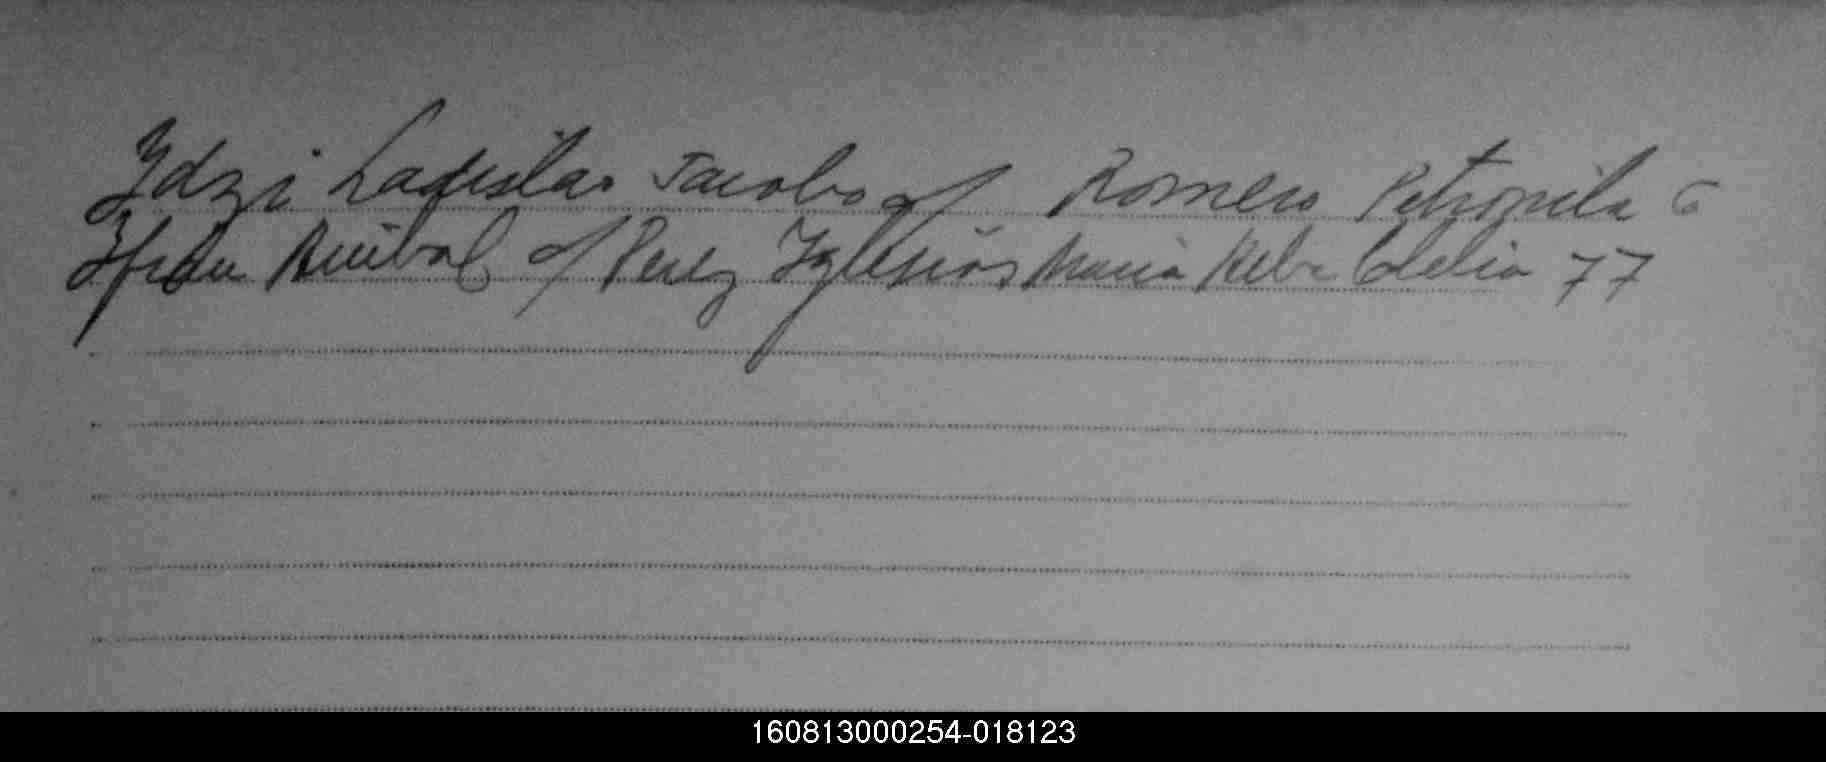 Ydzi Ladislao Jacobo c/ Romero Petronila 6
Anibal c/ Perez Yglesias Maria Delia 77
160813000254-018123